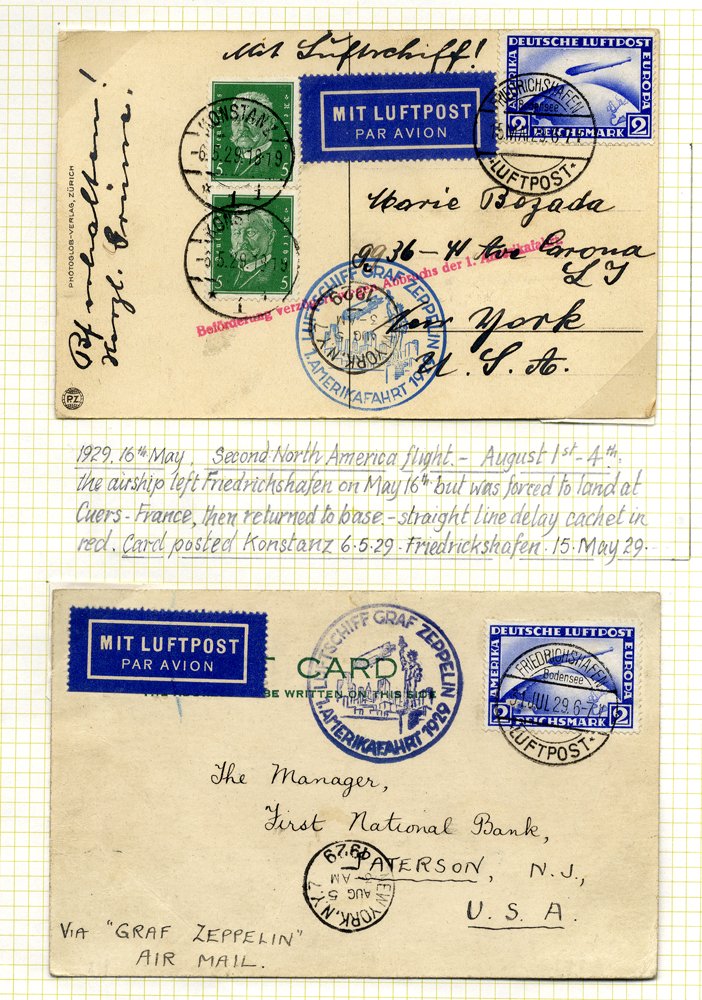 Mit Luftschiff!
DEUTSCHE LUFTPOST
AMERIKA
EUROPA
2 REICHSMARK 2
FRIEDRICHSHAFEN
Bodensee
LUFTPOST
MIT LUFTPOST
PAR AVION
KONSTANZ
6.5.29.18-19
5 5
KONST
6.5.29.18-19
5 5
PHOTOGLOB-VERLAG, ZÜRICH
erhalten!
Herzl. Grüsse.
PZ
Marie Bozada
36-41 Ave Corona
L I
New York
U. S. A.
Beförderung verzögert wegen Abbruchs der 1. Amerikafahrt
LUFTSCHIFF GRAF ZEPPELIN
1. AMERIKAFAHRT 1929
NEW YORK, N.Y.
AUG 5
1929
1929. 16th May. Second North America flight. - August 1st - 4th:
the airship left Friedrichshafen on May 16th but was forced to land at
Cuers - France, then returned to base - straight line delay cachet in
red. Card posted Konstanz 6.5.29. Friedrickshafen. 15. May 29.
MIT LUFTPOST
PAR AVION
CARD
BE WRITTEN ON THIS SIDE
LUFTSCHIFF GRAF ZEPPELIN
1. AMERIKAFAHRT 1929
DEUTSCHE LUFTPOST
AMERIKA
EUROPA
2 REICHSMARK 2
FRIEDRICHSHAFEN
Bodensee
31.JUL.29.6-7
LUFTPOST
The Manager,
First National Bank,
PATERSON, N. J.,
U. S. A.
NEW YORK, N.Y.
AUG 5
AM
1929
VIA "GRAF ZEPPELIN"
AIR MAIL.